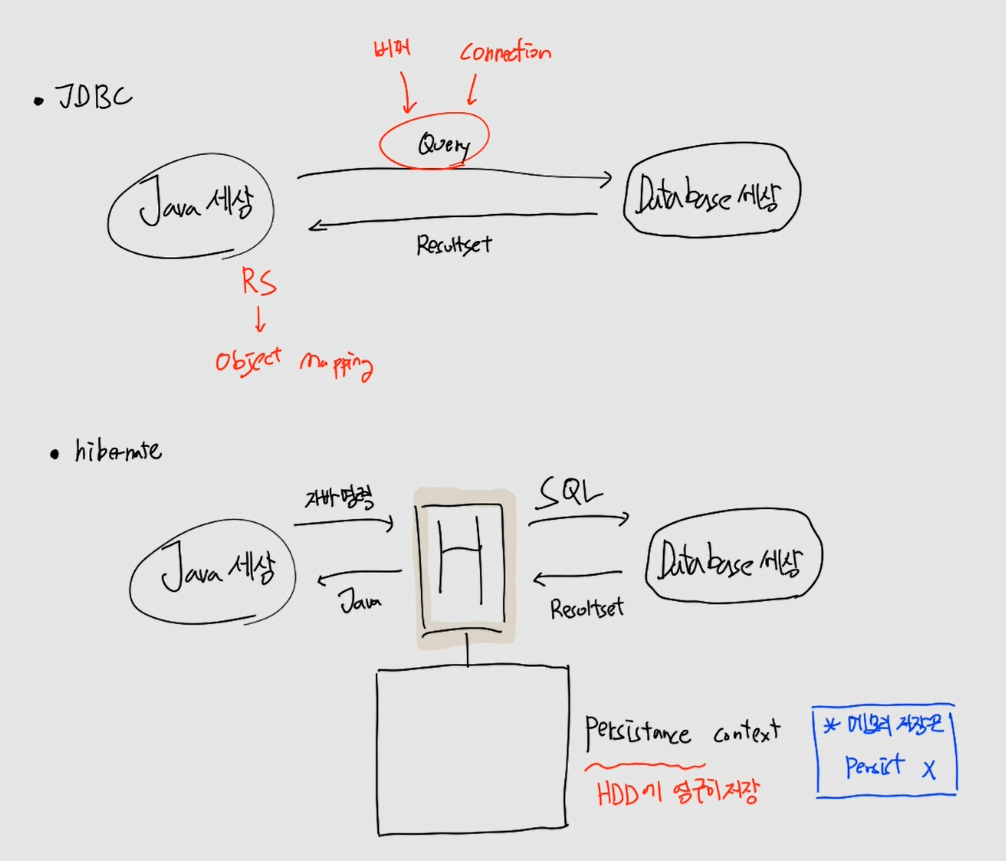 버퍼 Connection
• JDBC
Query
Java 세상
Database 세상
Resultset
RS
Object mapping
• hibernate
자바 명령
SQL
H
Java 세상
Database 세상
Java
Resultset
Persistance context
* 메모리 저장은
Persist X
HDD에 영구히 저장